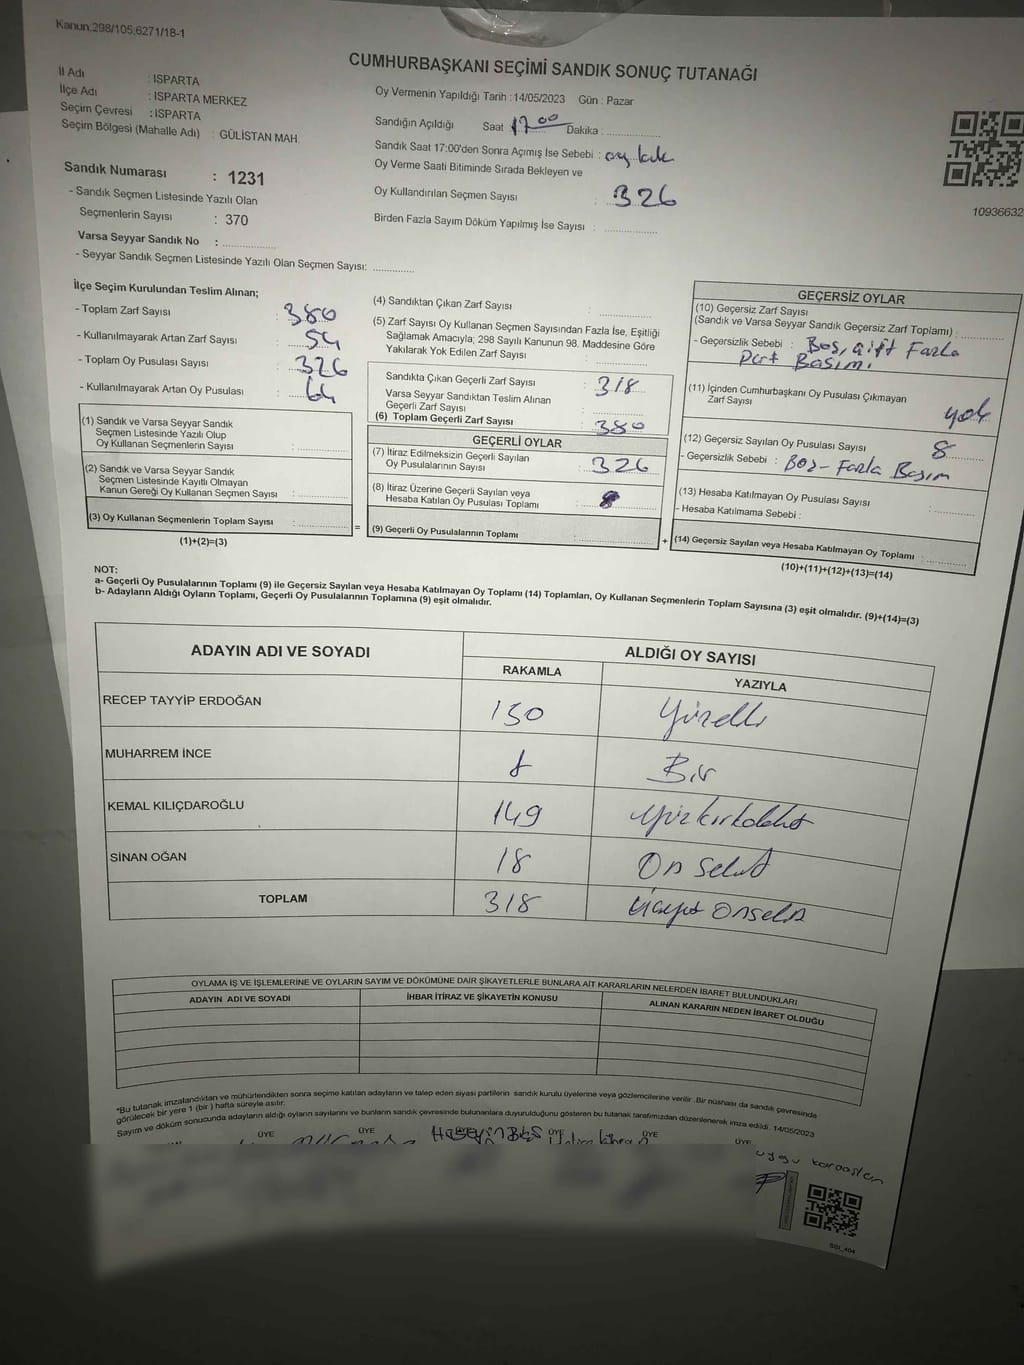 Kanun,298/105,6271/18-1
CUMHURBAŞKANI SEÇİMİ SANDIK SONUÇ TUTANAĞI
İl Adı : ISPARTA
İlçe Adı : ISPARTA MERKEZ
Seçim Çevresi : ISPARTA
Seçim Bölgesi (Mahalle Adı) : GÜLİSTAN MAH.
Sandık Numarası : 1231
- Sandık Seçmen Listesinde Yazılı Olan
Seçmenlerin Sayısı : 370
Varsa Seyyar Sandık No : ..............
- Seyyar Sandık Seçmen Listesinde Yazılı Olan Seçmen Sayısı: ..............
Oy Vermenin Yapıldığı Tarih : 14/05/2023 Gün : Pazar
Sandığın Açıldığı Saat 17.00 Dakika : ..............
Sandık Saat 17:00'den Sonra Açımış İse Sebebi :
Oy Verme Saati Bitiminde Sırada Bekleyen ve
Oy Kullandırılan Seçmen Sayısı : 326
Birden Fazla Sayım Döküm Yapılmış İse Sayısı : ..............
10936632
İlçe Seçim Kurulundan Teslim Alınan;
- Toplam Zarf Sayısı : 380
- Kullanılmayarak Artan Zarf Sayısı : 54
- Toplam Oy Pusulası Sayısı : 326
- Kullanılmayarak Artan Oy Pusulası : 64
(1) Sandık ve Varsa Seyyar Sandık
Seçmen Listesinde Yazılı Olup
Oy Kullanan Seçmenlerin Sayısı : ..............
(2) Sandık ve Varsa Seyyar Sandık
Seçmen Listesinde Kayıtlı Olmayan
Kanun Gereği Oy Kullanan Seçmen Sayısı : ..............
(3) Oy Kullanan Seçmenlerin Toplam Sayısı : .............. =
(1)+(2)=(3)
(4) Sandıktan Çıkan Zarf Sayısı : ..............
(5) Zarf Sayısı Oy Kullanan Seçmen Sayısından Fazla İse, Eşitliği
Sağlamak Amacıyla; 298 Sayılı Kanunun 98. Maddesine Göre
Yakılarak Yok Edilen Zarf Sayısı : ..............
Sandıkta Çıkan Geçerli Zarf Sayısı : 318
Varsa Seyyar Sandıktan Teslim Alınan
Geçerli Zarf Sayısı : ..............
(6) Toplam Geçerli Zarf Sayısı : 380
GEÇERLİ OYLAR
(7) İtiraz Edilmeksizin Geçerli Sayılan
Oy Pusulalarının Sayısı : 326
(8) İtiraz Üzerine Geçerli Sayılan veya
Hesaba Katılan Oy Pusulası Toplamı :
(9) Geçerli Oy Pusulalarının Toplamı : .............. +
GEÇERSİZ OYLAR
(10) Geçersiz Zarf Sayısı
(Sandık ve Varsa Seyyar Sandık Geçersiz Zarf Toplamı) : ..............
- Geçersizlik Sebebi : Boş, Çift Fazla
Basım.
(11) İçinden Cumhurbaşkanı Oy Pusulası Çıkmayan
Zarf Sayısı yok
(12) Geçersiz Sayılan Oy Pusulası Sayısı 8
- Geçersizlik Sebebi : Boş - Fazla Basım
(13) Hesaba Katılmayan Oy Pusulası Sayısı : ..............
- Hesaba Katılmama Sebebi :
(14) Geçersiz Sayılan veya Hesaba Katılmayan Oy Toplamı : ..............
(10)+(11)+(12)+(13)=(14)
NOT:
a- Geçerli Oy Pusulalarının Toplamı (9) ile Geçersiz Sayılan veya Hesaba Katılmayan Oy Toplamı (14) Toplamları, Oy Kullanan Seçmenlerin Toplam Sayısına (3) eşit olmalıdır. (9)+(14)=(3)
b- Adayların Aldığı Oyların Toplamı, Geçerli Oy Pusulalarının Toplamına (9) eşit olmalıdır.
ADAYIN ADI VE SOYADI ALDIĞI OY SAYISI
RAKAMLA YAZIYLA
RECEP TAYYİP ERDOĞAN 150 Yüzelli
MUHARREM İNCE 1 Bir
KEMAL KILIÇDAROĞLU 149 Yüzkırkdokuz
SİNAN OĞAN 18 On sekiz
TOPLAM 318 Üçyüz Onsekiz
OYLAMA İŞ VE İŞLEMLERİNE VE OYLARIN SAYIM VE DÖKÜMÜNE DAİR ŞİKAYETLERLE BUNLARA AİT KARARLARIN NELERDEN İBARET BULUNDUKLARI
ADAYIN ADI VE SOYADI İHBAR İTİRAZ VE ŞİKAYETİN KONUSU ALINAN KARARIN NEDEN İBARET OLDUĞU
*Bu tutanak imzalandıktan ve mühürlendikten sonra seçime katılan adayların ve talep eden siyasi partilerin sandık kurulu üyelerine veya gözlemcilerine verilir. Bir nüshası da sandık çevresinde
görülecek bir yere 1 (bir) hafta süreyle asılır.
Sayım ve döküm sonucunda adayların aldığı oyların sayılarını ve bunların sandık çevresinde bulunanlara duyurulduğunu gösteren bu tutanak tarafımızdan düzenlenerek imza edildi. 14/05/2023
ÜYE ÜYE ÜYE ÜYE ÜYE
SSI_404